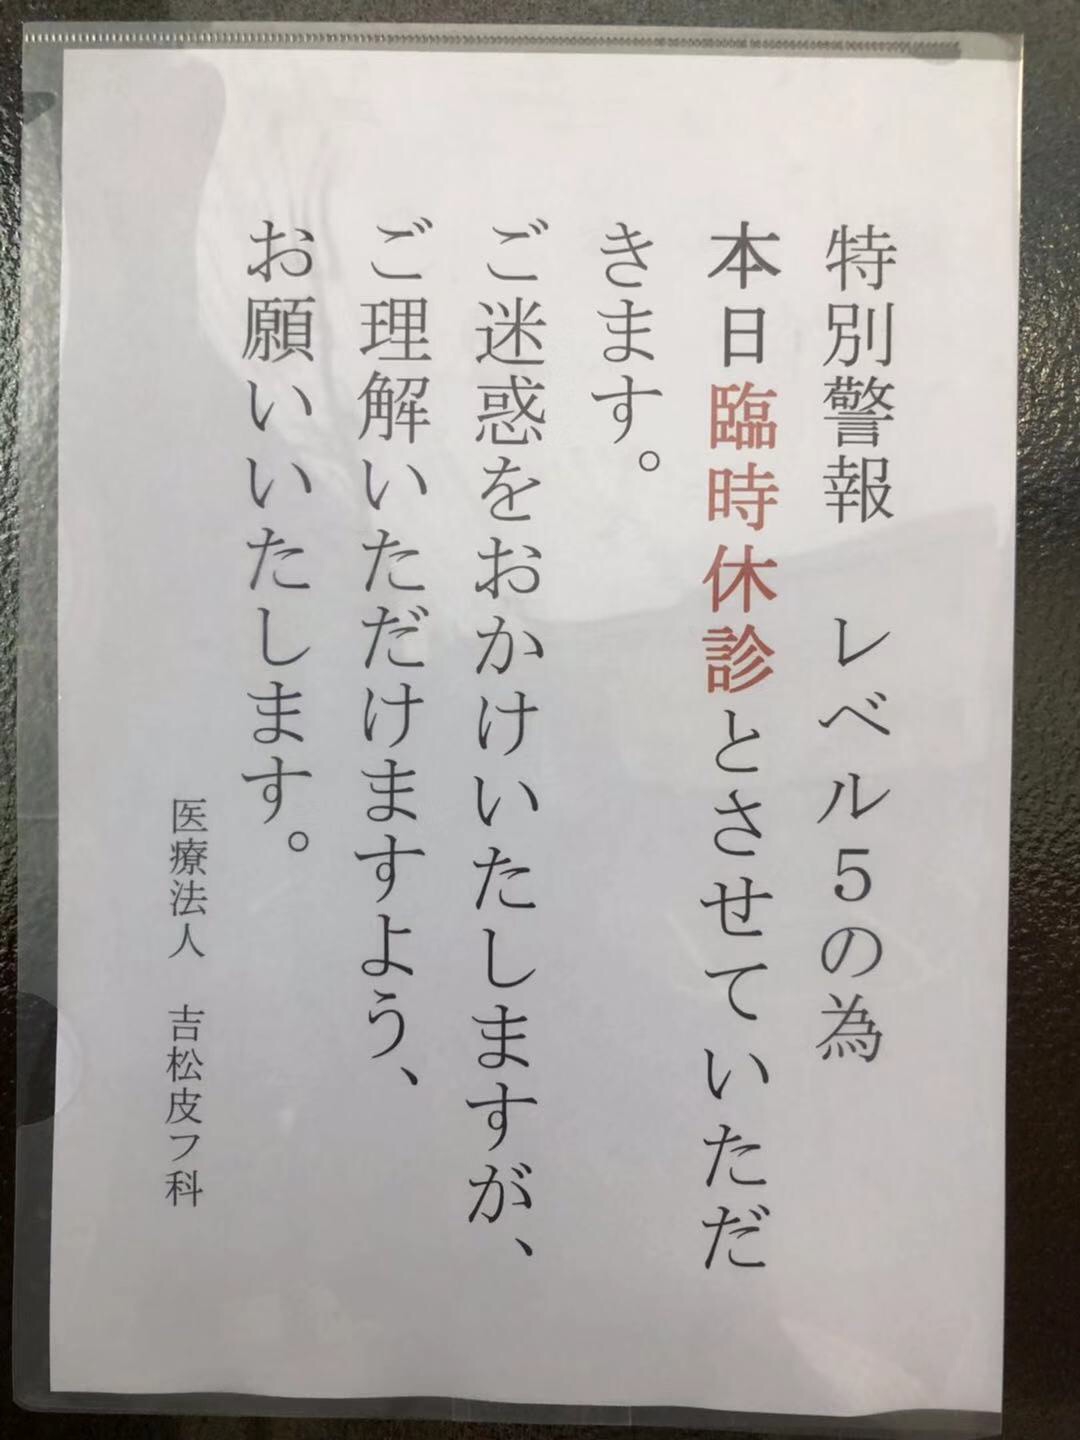 特別警報　レベル５の為
本日臨時休診とさせていただ
きます。
ご迷惑をおかけいたしますが、
ご理解いただけますよう、
お願いいたします。
医療法人　吉松皮フ科